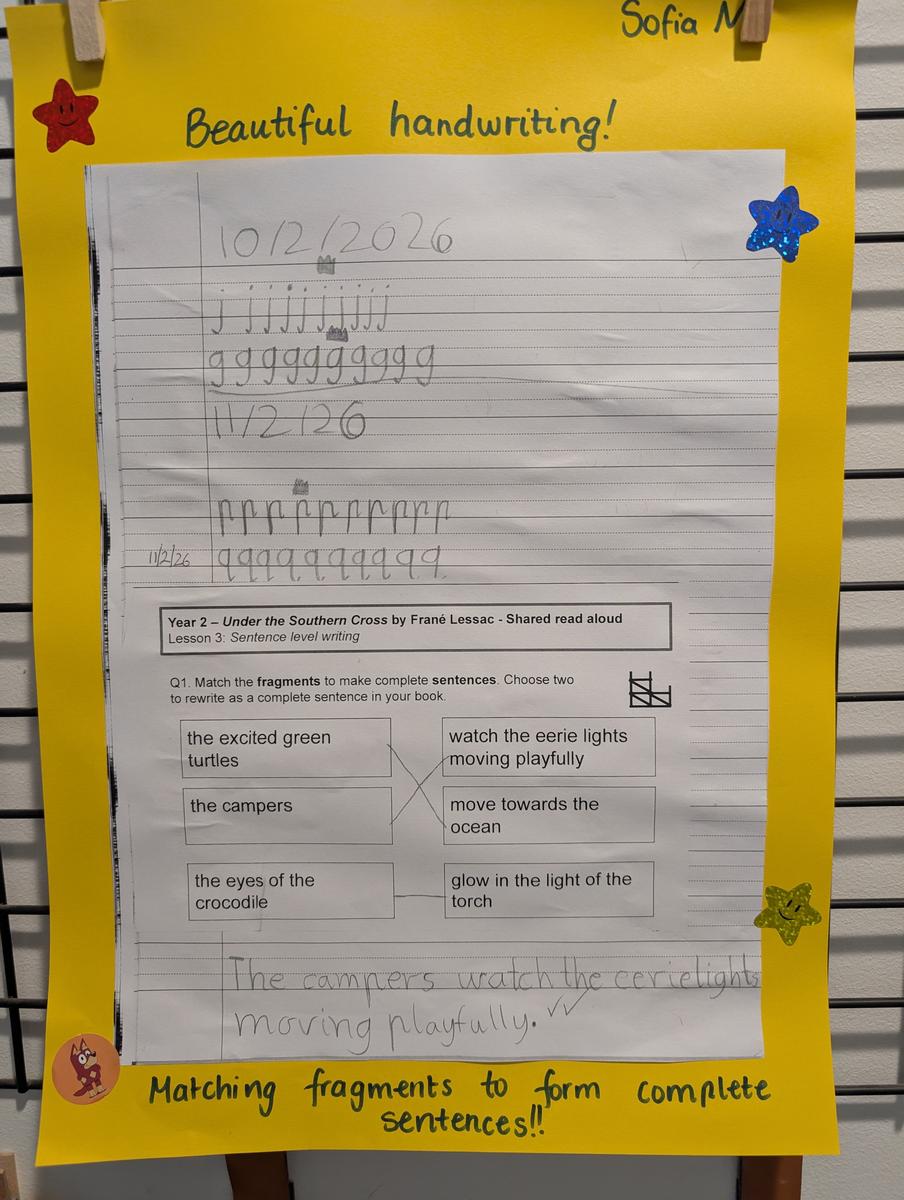 Sofia N
Beautiful handwriting!
10/2/2026
j j j j j j j j j j
g g g g g g g g g g
11/2/26
p p p p p p p p p p
11/2/26 q q q q q q q q q q
Year 2 – Under the Southern Cross by Frané Lessac - Shared read aloud
Lesson 3: Sentence level writing
Q1. Match the fragments to make complete sentences. Choose two
to rewrite as a complete sentence in your book.
the excited green
turtles
watch the eerie lights
moving playfully
the campers
move towards the
ocean
the eyes of the
crocodile
glow in the light of the
torch
The campers watch the eerie lights
moving playfully.
Matching fragments to form complete
sentences!!